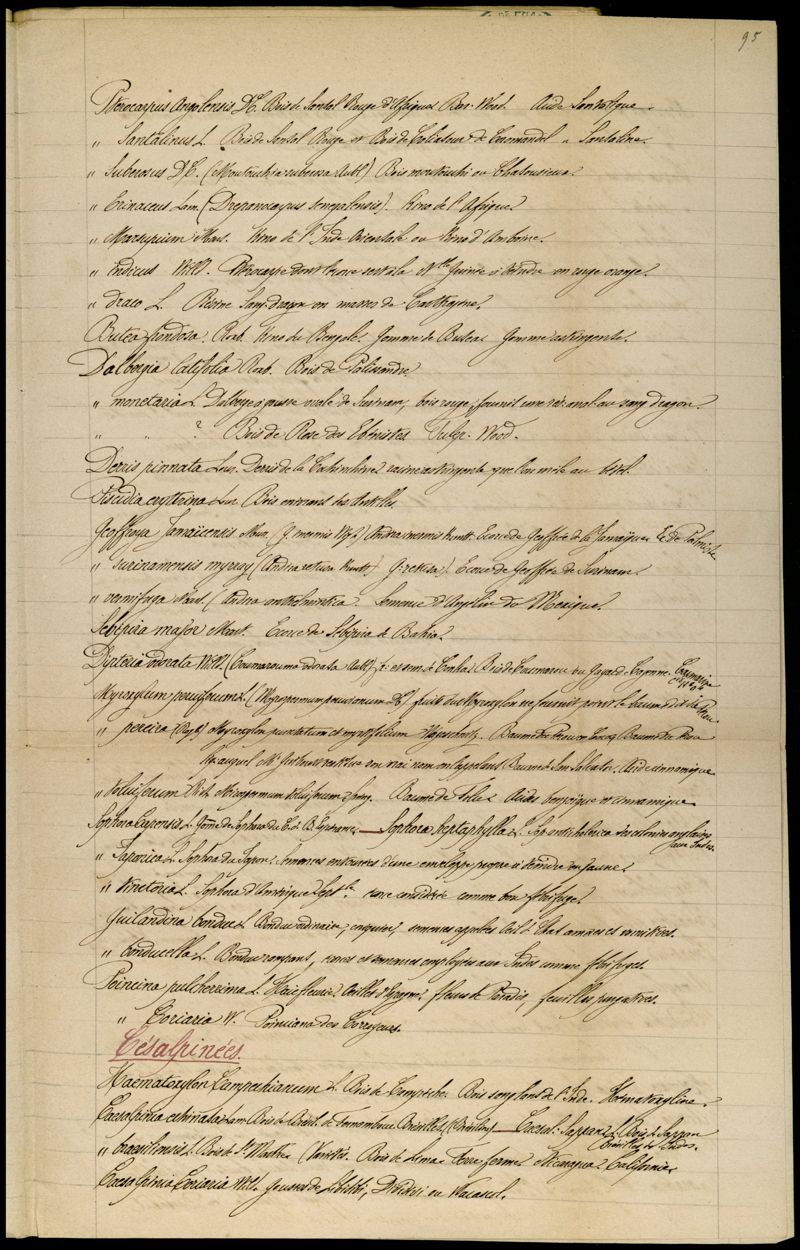 95
Pterocarpus Angolensis DC. Bois de Santal Rouge d'Afrique Bar-Wood. Acide Santalique.
" Santalinus L. Bois de Santal Rouge et Bois de Caliatour de Coromandel " Santaline.
" Suberosus D.C. (Moutouchia suberosa Aubl) Bois moutouchi ou Chatousieux
" Erinaceus Lam. (Drepanocarpus Senegalensis). Kino de l'Afrique
" Marsupium Mart. Kino de l'Inde Orientale ou Kino d'Amboine.
" indicus Willd. Pterocarpe dont le bois sert à la Nlle Guinée à teindre en rouge orange.
" draco L. Résine Sang dragon en masses de Carthagène.
Butea frondosa. Roxb. Kino du Bengale. Gomme de Butea Gomme astringente.
Dalbergia latifolia Roxb. Bois de Palissandre
" monetaria L. Dalberge à gousse ovale de Surinam, bois rouge, fournit une rés. anal. au sang dragon.
" " ? Bois de Rose des Ebénistes Tulip-Wood.
Derris pinnata Lour. Derris de la Cochinchine racine astringente que l'on mêle au bétel.
Piscidia erythrina Lin Bois enivrant des Antilles.
Geoffroya Jamaicensis Mur. (G. inermis Wrgt) Andira inermis Kunth. Ecorce de Geoffrée de la Jamaïque Ec. de Palmiste
" surinamensis murray (Andira retusa Kunth) G. retusa) Ecorce de Geoffrée de Surinam.
" vermifuga Mart. (Andira anthelmintica. Semence d'Angelin du Mexique.
Sebipira major Mart. Ecorce de Sebipira de Bahia.
Dipterix odorata Willd. (Coumarouma odorata Aubl) f. et sem. de Tonka Bois de Coumarou ou Gayac de Cayenne. Coumarine
Myroxylum peruiferum L. (Myrospermum peruvianum DC) fruits du Myroxylon ne fournit point le baume dit du Pérou
" pereira (Royle) Myroxylon punctatum et myrtifolium Baume du Pérou en Baume du Pérou
auquel Mr Guibourt restitue son vrai nom en l'appelant Baume de San Salvador. Acide cinnamique
" toluiferum Rich. Myrospermum toluiferum Spreng. Baume de Tolu. Acides benzoïque et cinnamique
Sophora Capensis L. Gomme de Sophora du C. de B. Espérance — Sophora heptaphylla L. Sop. anticholérica des colonies anglaises
aux Indes.
" Japonica L. Sophora du Japon. Semences entourées d'une enveloppe propre à teindre en jaune.
" tinctoria L. Sophora d'Amérique Septle. racine considérée comme bon fébrifuge.
Guilandina bonduc L. Bonduc ordinaire, cniquier, semences appelées œil de chat amères et vomitives.
" bonducella L. Bonduc rampant, racines et semences employées aux Indes comme fébrifuges.
Poincina pulcherrima L. Haie fleurie. Oeillet d'Espagne, fleurs de Paradis, feuilles purgatives.
" Coriaria W. Poinciana des Corroyeurs.
Césalpinées.
Haematoxylon Campechianum L. Bois de Campêche. Bois sanglant de l'Inde. Hématoxyline.
Caesalpinia echinata Lam. Bois de Brésil, de Fernambouc Brésillet, (Brésiline) — Caesal: Sappan L. Bois de Sappan
Brésillet des Indes.
" brasiliensis L. Bois de Ste Marthe. (Variétés. Bois de Lima. Terre ferme. Nicaragua. Californie
Caesalpinia Coriaria Willd. gousses de Libidibi, Dividivi ou Nacascol.